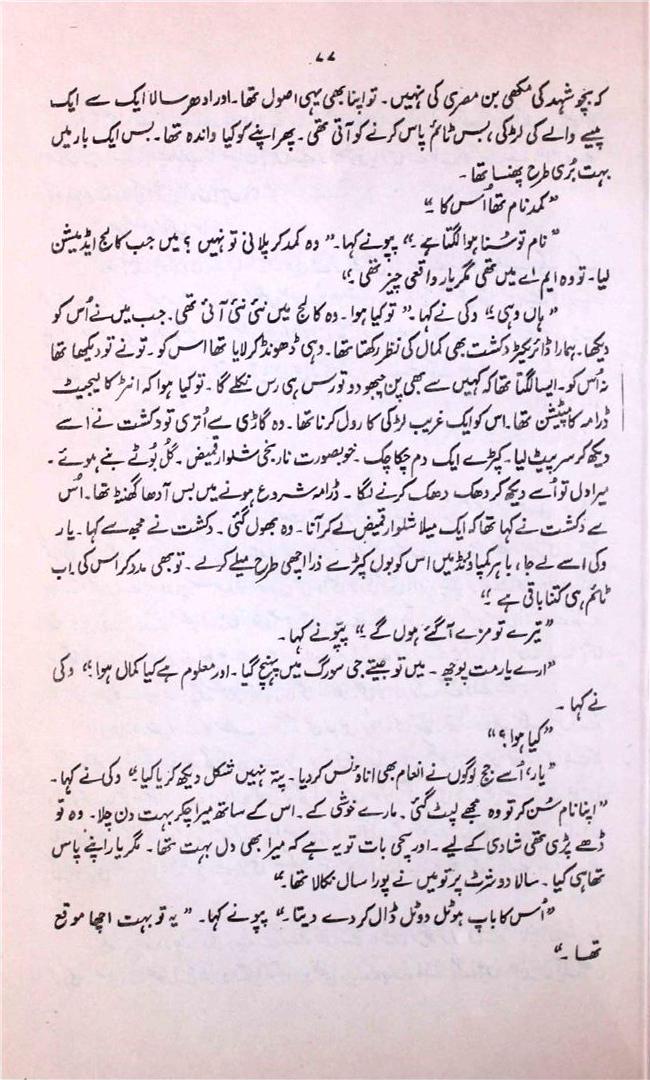 ۷۷
کہ بچو شہد کی مکھی بن مصری کی نہیں۔ تو اپنا بھی یہی اصول تھا۔ اور ادھر سالا ایک سے ایک
پیسے والے کی لڑکی بس ٹائم پاس کرنے کو آتی تھی۔ پھر اپنے کو کیا واندہ تھا۔ بس ایک بار میں
بہت بُری طرح پھنسا تھا۔
”کمد نام تھا اُس کا۔“
”نام تو سُنا ہوا لگتا ہے۔“ پپو نے کہا۔ ”وہ کمد کرپلانی تو نہیں؟ میں جب کالج ایڈمیشن
لیا۔ تو وہ ایم اے میں تھی مگر یار واقعی چیز تھی۔“
”ہاں وہی۔“ وکی نے کہا۔ ”تو کیا ہوا۔ وہ کالج میں نئی نئی آئی تھی۔ جب میں نے اُس کو
دیکھا۔ ہمارا ڈائریکٹر دکشت بھی کمال کی نظر رکھتا تھا۔ وہی ڈھونڈ کر لایا تھا اس کو۔ تو نے تو دیکھا تھا
نہ اُس کو۔ ایسا لگتا تھا کہ کہیں سے بھی پن چبھو دو تو رس ہی رس نکلے گا۔ تو کیا ہوا کہ انٹر کالیجیٹ
ڈرامہ کامپٹیشن تھا۔ اس کو ایک غریب لڑکی کا رول کرنا تھا۔ وہ گاڑی سے اُتری تو دکشت نے اسے
دیکھ کر سر پیٹ لیا۔ کپڑے ایک دم چکا چک۔ خوبصورت نارنجی شلوار قمیض۔ گُل بُوٹے بنے ہوئے۔
میرا دل تو اُسے دیکھ کر دھک دھک کرنے لگا۔ ڈرامہ شروع ہونے میں بس آدھا گھنٹہ تھا۔ اُس
سے دکشت نے کہا تھا کہ ایک میلا شلوار قمیض لے کر آنا۔ وہ بھول گئی۔ دکشت نے مجھ سے کہا۔ یار
وکی اسے لے جا، باہر کمپاؤنڈ میں اس کو بول کپڑے ذرا اچھی طرح میلے کرلے۔ تو بھی مدد کر اس کی اب
ٹائم ہی کتنا باقی ہے۔“
”تیرے تو مزے آگئے ہوں گے۔“ پپو نے کہا۔
”ارے یار مت پوچھ۔ میں تو جیتے جی سورگ میں پہنچ گیا۔ اور معلوم ہے کیا کمال ہوا۔“ وکی
نے کہا۔
”کیا ہوا؟“
”یار، اُسے جج لوگوں نے انعام بھی اناؤنس کر دیا۔ پتہ نہیں شکل دیکھ کر یا کیا۔“ وکی نے کہا۔
”اپنا نام سُن کر تو وہ مجھ سے لپٹ گئی۔ مارے خوشی کے۔ اس کے ساتھ میرا چکر بہت دن چلا۔ وہ تو
ڈھے پڑی تھی شادی کے لیے۔ اور سچی بات تو یہ ہے کہ میرا بھی دل بہت تھا۔ مگر یار اپنے پاس
تھا ہی کیا۔ سالا دو شرٹ پر تو میں نے پورا سال نکالا تھا۔“
”اُس کا باپ ہوٹل ووٹل ڈال کر دے دیتا۔“ پپو نے کہا۔ ”یہ تو بہت اچھا موقع
تھا۔“